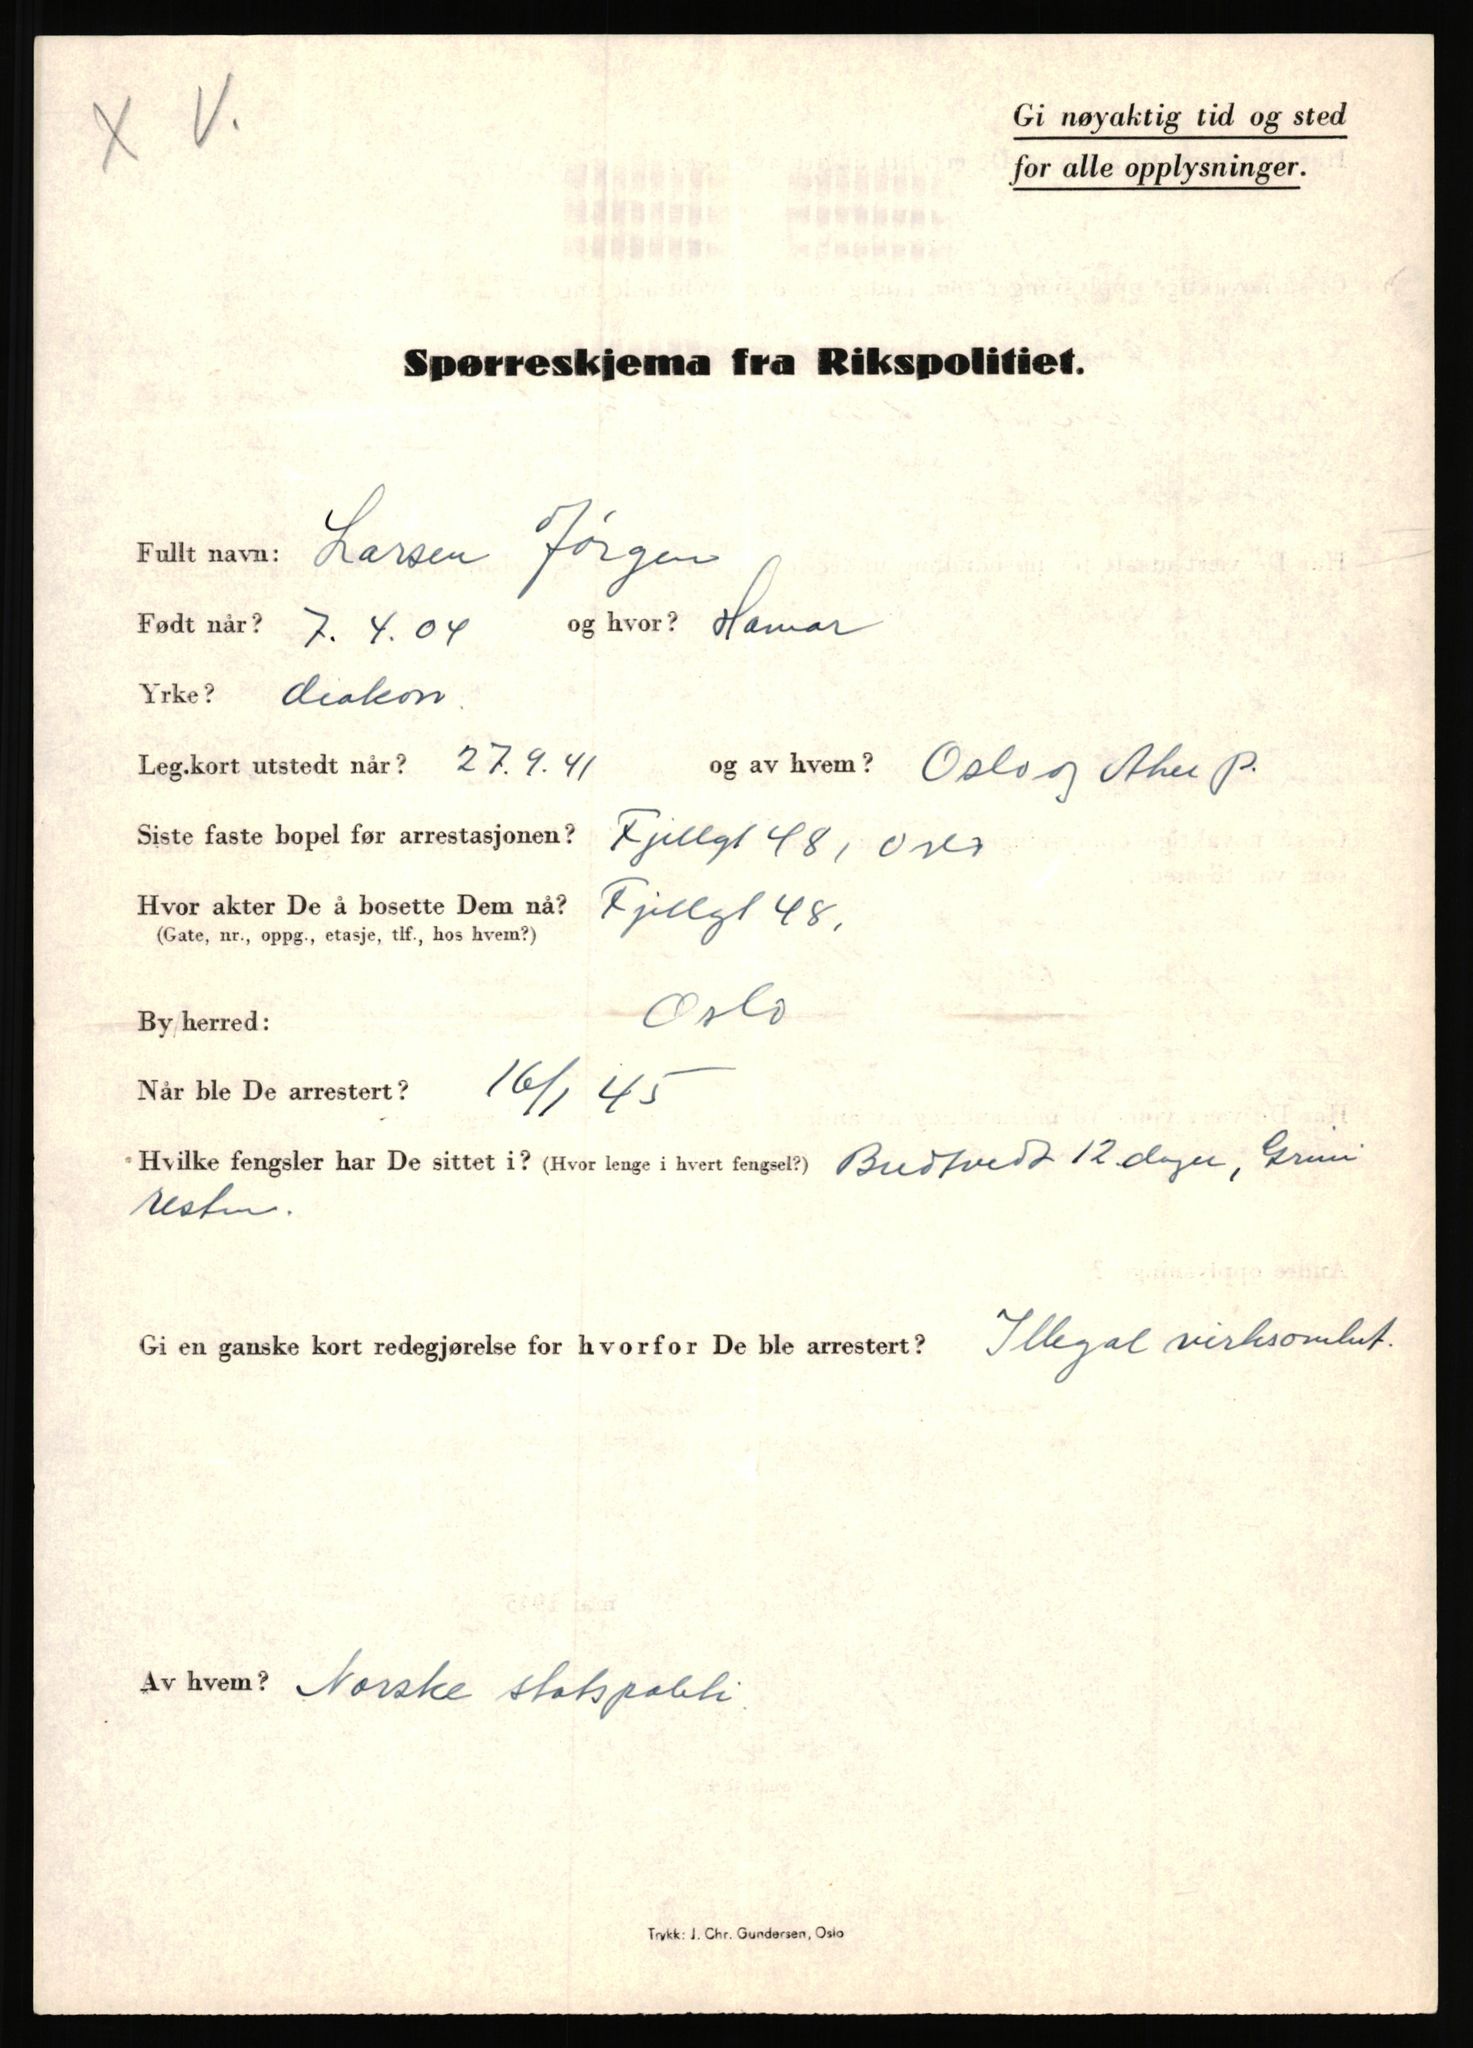 X V.
Gi nøyaktig tid og sted
for alle opplysninger.
Spørreskjema fra Rikspolitiet.
Fullt navn: Larsen Jørgen
Født når? 7. 4. 04 og hvor? Hamar
Yrke? diakon.
Leg.kort utstedt når? 27.9.41 og av hvem? Oslo og Aker p.
Siste faste bopel før arrestasjonen? Fjellgt 48, Oslo
Hvor akter De å bosette Dem nå? Fjellgt 48,
(Gate, nr., oppg., etasje, tlf., hos hvem?)
By/herred: Oslo
Når ble De arrestert? 16/1 45
Hvilke fengsler har De sittet i? (Hvor lenge i hvert fengsel?) Bredtvedt 12 dager, Grini
resten.
Gi en ganske kort redegjørelse for hvorfor De ble arrestert? Illegal virksomhet.
Av hvem? Norske statspoliti.
Trykk: J. Chr. Gundersen, Oslo